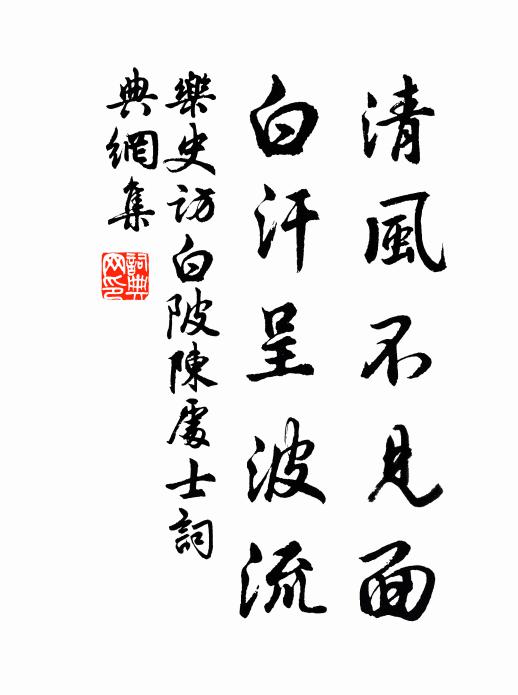 清風不見面
白汗呈波流
樂史訪白陂陳處士詞
典網集
詞典网印